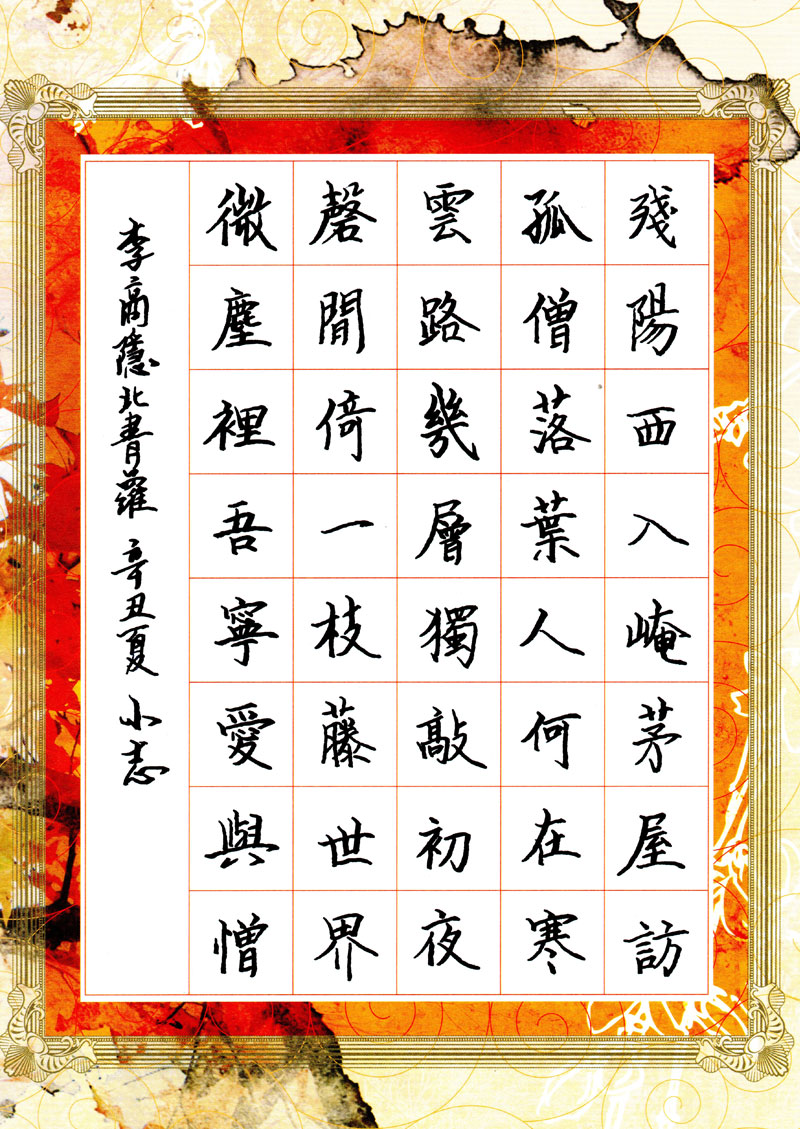 殘陽西入崦茅屋訪
孤僧落葉人何在寒
雲路幾層獨敲初夜
磬閒倚一枝藤世界
微塵裡吾寧愛與憎
李商隱北青蘿 辛丑夏 小志